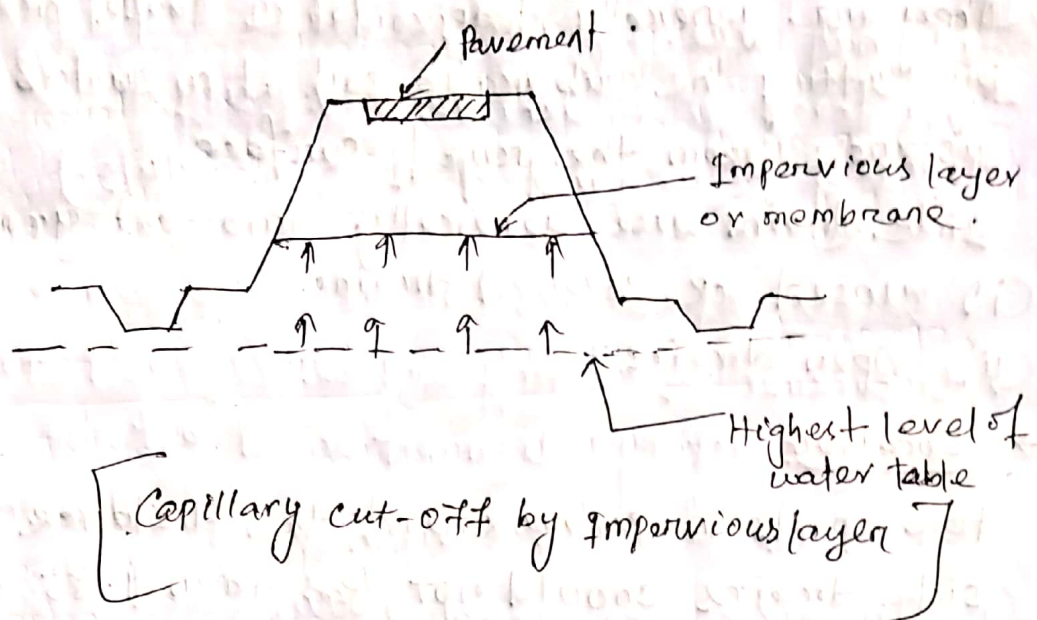 Pavement.
Impervious layer
or membrane.
Highest level of
water table
Capillary cut-off by Impervious layer